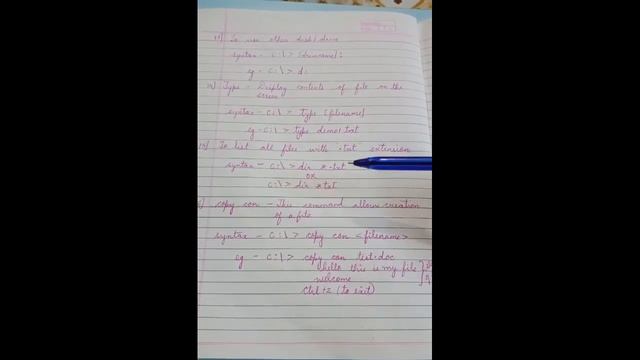 To use other disk/drive
syntax - C:\> [drivename]:
eg - C:\> d:
Type - Display contents of file on the
screen
syntax - C:\> type [filename]
eg - C:\> type demo1.txt
To list all files with .txt extension
syntax - C:\> dir *.txt
OR
C:\> dir *txt
copy con - This command allow creation
of a file
syntax - C:\> copy con <filename>
eg - C:\> copy con test.doc
hello this is my file
welcome
Ctrl+z (to exit)